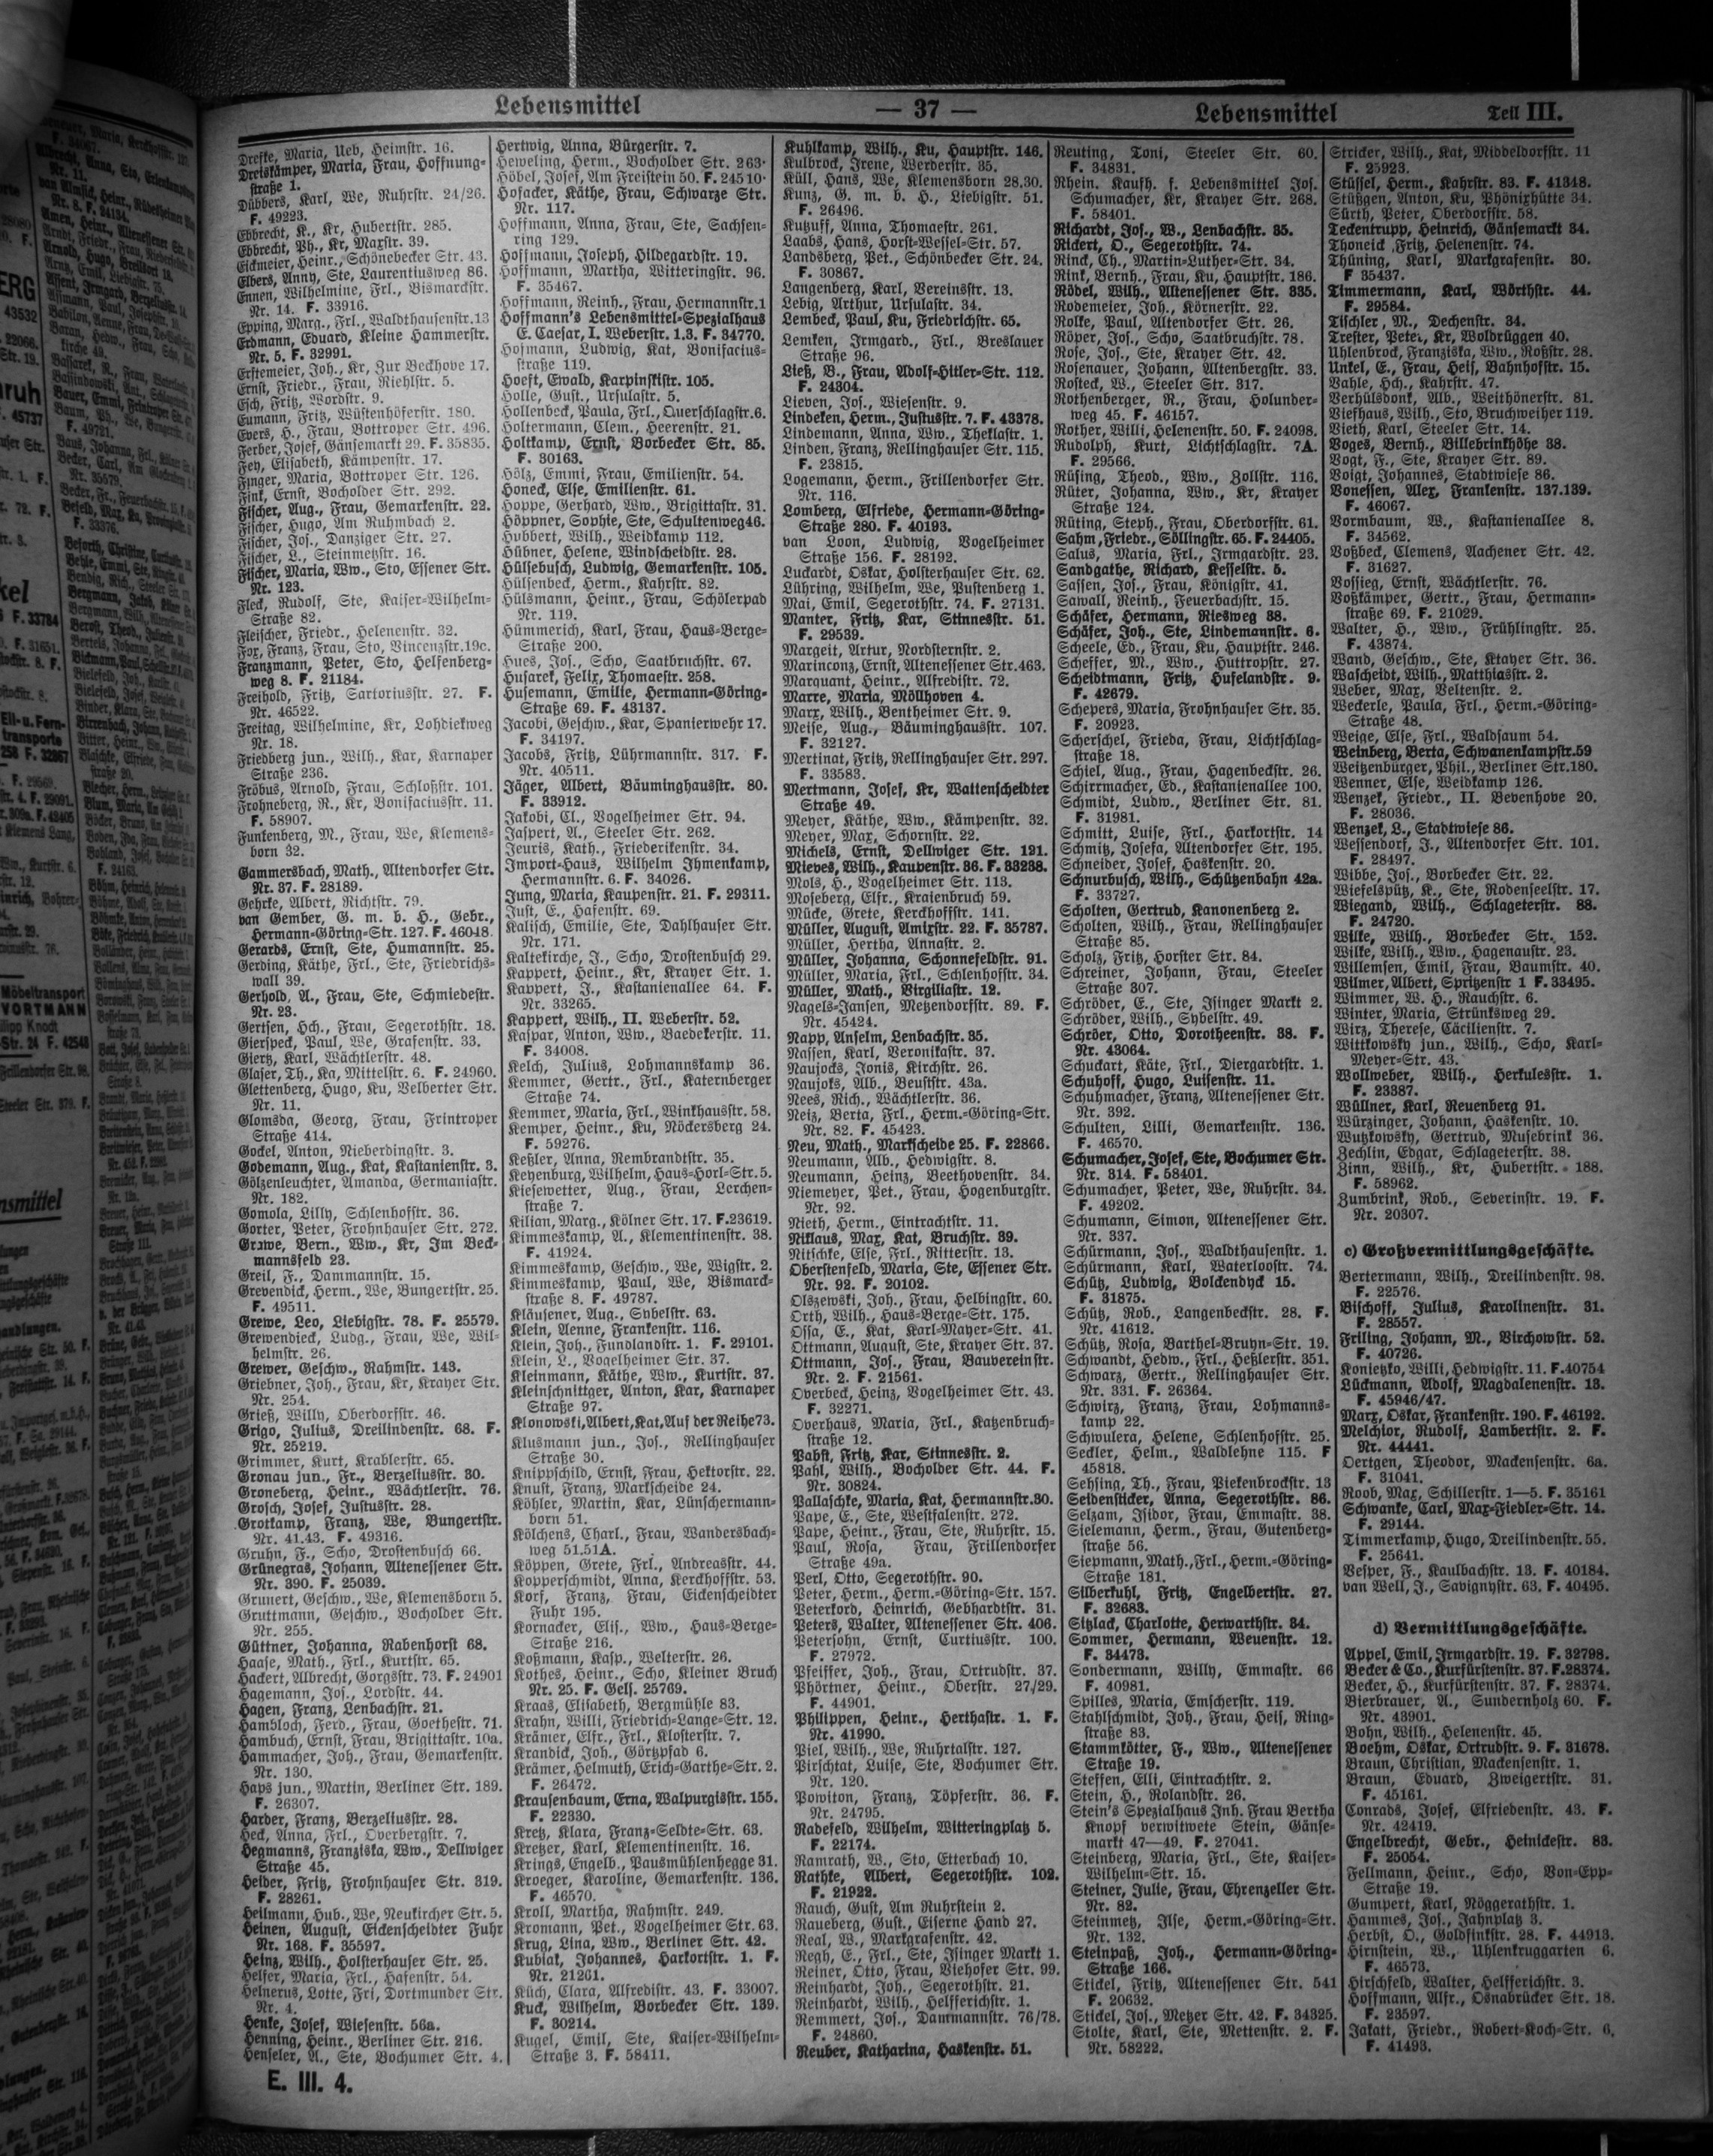 Lebensmittel — 37 — Lebensmittel Teil III.
Drefke, Maria, Ueb, Heimstr. 16.
Dreiskämper, Maria, Frau, Hoffnung-
straße 1.
Dübbers, Karl, We, Ruhrstr. 24/26.
F. 49223.
Ebbrecht, K., Kr, Hubertstr. 285.
Ebbrecht, Ph., Kr, Marstr. 39.
Eickmeier, Heinr., Schönebecker Str. 43.
Elbers, Anny, Ste, Laurentiusweg 86.
Ennen, Wilhelmine, Frl., Bismarckstr.
Nr. 14. F. 33916.
Epping, Marg., Frl., Waldthausenstr. 13
Erdmann, Eduard, Kleine Hammerstr.
Nr. 5. F. 32991.
Erstemeier, Joh., Kr, Zur Beckhove 17.
Ernst, Friedr., Frau, Riehlstr. 5.
Esch, Fritz, Wordstr. 9.
Eumann, Fritz, Wüstenhöferstr. 180.
Evers, H., Frau, Bottroper Str. 496.
Ferber, Josef, Gänsemarkt 29. F. 35835.
Fey, Elisabeth, Kämpenstr. 17.
Finger, Maria, Bottroper Str. 126.
Fink, Ernst, Bocholder Str. 292.
Fischer, Aug., Frau, Gemarkenstr. 22.
Fischer, Hugo, Am Ruhmbach 2.
Fischer, Jos., Danziger Str. 27.
Fischer, L., Steinmetzstr. 16.
Fischer, Maria, Ww., Sto, Essener Str.
Nr. 123.
Fleck, Rudolf, Ste, Kaiser-Wilhelm-
Straße 82.
Fleischer, Friedr., Helenenstr. 32.
Fox, Franz, Frau, Sto, Vincenzstr. 19c.
Franzmann, Peter, Sto, Helfenberg-
weg 8. F. 21184.
Freihold, Fritz, Sartoriusstr. 27. F.
Nr. 46522.
Freitag, Wilhelmine, Kr, Lohdiekweg
Nr. 18.
Friedberg jun., Wilh., Kar, Karnaper
Straße 236.
Fröbus, Arnold, Frau, Schloßstr. 101.
Frohneberg, R., Kr, Bonifaciusstr. 11.
F. 58907.
Funkenberg, M., Frau, We, Klemens-
born 32.
Gammersbach, Math., Altendorfer Str.
Nr. 37. F. 28189.
Gehrke, Albert, Richtstr. 79.
van Gember, G. m. b. H., Gebr.,
Hermann-Göring-Str. 127. F. 46048.
Gerards, Ernst, Ste, Humannstr. 25.
Gerding, Käthe, Frl., Ste, Friedrichs-
wall 39.
Gerhold, A., Frau, Ste, Schmiedestr.
Nr. 23.
Gertsen, Hch., Frau, Segerothstr. 18.
Gierspeck, Paul, We, Grafenstr. 33.
Giertz, Karl, Wächtlerstr. 48.
Glaser, Th., Ka, Mittelstr. 6. F. 24960.
Glettenberg, Hugo, Ku, Velberter Str.
Nr. 11.
Glomsda, Georg, Frau, Frintroper
Straße 414.
Gockel, Anton, Nieberdingstr. 3.
Godemann, Aug., Kat, Kastanienstr. 3.
Gölzenleuchter, Amanda, Germaniastr.
Nr. 182.
Gomola, Lilly, Schlenhofstr. 36.
Gorter, Peter, Frohnhauser Str. 272.
Grawe, Bern., Ww., Kr, Im Beck-
mannsfeld 23.
Greil, F., Dammannstr. 15.
Grevendick, Herm., We, Bungertstr. 25.
F. 49511.
Grewe, Leo, Liebigstr. 78. F. 25579.
Grewendieck, Ludg., Frau, We, Wil-
helmstr. 26.
Grewer, Geschw., Rahmstr. 143.
Griebner, Joh., Frau, Kr, Krayer Str.
Nr. 254.
Grieß, Willy, Oberdorfstr. 46.
Grigo, Julius, Dreilindenstr. 68. F.
Nr. 25219.
Grimmer, Kurt, Krablerstr. 65.
Gronau jun., Fr., Berzeliusstr. 30.
Groneberg, Heinr., Wächtlerstr. 76.
Grosch, Josef, Justusstr. 28.
Grotkamp, Franz, We, Bungertstr.
Nr. 41.43. F. 49316.
Gruhn, F., Scho, Drostenbusch 66.
Grünegras, Johann, Altenessener Str.
Nr. 390. F. 25039.
Grunert, Geschw., We, Klemensborn 5.
Gruttmann, Geschw., Bocholder Str.
Nr. 255.
Güttner, Johanna, Rabenhorst 68.
Haase, Math., Frl., Kurtstr. 65.
Hackert, Albrecht, Gorgsstr. 73. F. 24901
Hagemann, Jos., Lordstr. 44.
Hagen, Franz, Lenbachstr. 21.
Hambloch, Ferd., Frau, Goethestr. 71.
Hambuch, Ernst, Frau, Brigittastr. 10a.
Hammacher, Joh., Frau, Gemarkenstr.
Nr. 130.
Haps jun., Martin, Berliner Str. 189.
F. 26307.
Harder, Franz, Berzeliusstr. 28.
Heck, Anna, Frl., Overbergstr. 7.
Hegmanns, Franziska, Ww., Dellwiger
Straße 45.
Heider, Fritz, Frohnhauser Str. 319.
F. 28261.
Heilmann, Hub., We, Neukircher Str. 5.
Heinen, August, Eickenscheidter Fuhr
Nr. 168. F. 35597.
Heinz, Wilh., Holsterhauser Str. 25.
Helfer, Maria, Frl., Hafenstr. 54.
Helnerus, Lotte, Fri, Dortmunder Str.
Nr. 4.
Henke, Josef, Wiesenstr. 56a.
Henning, Heinr., Berliner Str. 216.
Henseler, A., Ste, Bochumer Str. 4.
E. III. 4.
Hertwig, Anna, Bürgerstr. 7.
Heweling, Herm., Bocholder Str. 263.
Höbel, Josef, Am Freistein 50. F. 24510.
Hofacker, Käthe, Frau, Schwarze Str.
Nr. 117.
Hoffmann, Anna, Frau, Ste, Sachsen-
ring 129.
Hoffmann, Joseph, Hildegardstr. 19.
Hoffmann, Martha, Witteringstr. 96.
F. 35467.
Hoffmann, Reinh., Frau, Hermannstr. 1
Hoffmann's Lebensmittel-Spezialhaus
E. Caesar, I. Weberstr. 1.3. F. 34770.
Hofmann, Ludwig, Kat, Bonifacius-
straße 119.
Hoeft, Ewald, Karpinskistr. 105.
Holle, Gust., Ursulastr. 5.
Hollenbeck, Paula, Frl., Querschlagstr. 6.
Holtermann, Clem., Heerenstr. 21.
Holtkamp, Ernst, Borbecker Str. 85.
F. 30163.
Hölz, Emmi, Frau, Emilienstr. 54.
Honeck, Else, Emilienstr. 61.
Hoppe, Gerhard, Ww., Brigittastr. 31.
Höppner, Sophie, Ste, Schultenweg 46.
Hubbert, Wilh., Weidkamp 112.
Hübner, Helene, Windscheidstr. 28.
Hülsebusch, Ludwig, Gemarkenstr. 105.
Hülsenbeck, Herm., Kahrstr. 82.
Hülsmann, Heinr., Frau, Schölerpad
Nr. 119.
Hümmerich, Karl, Frau, Haus-Berge-
Straße 200.
Hues, Jos., Scho, Saatbruchstr. 67.
Husarek, Felix, Thomaestr. 258.
Husemann, Emilie, Hermann-Göring-
Straße 69. F. 43137.
Jacobi, Geschw., Kar, Spanierwehr 17.
F. 34197.
Jacobs, Fritz, Lührmannstr. 317. F.
Nr. 40511.
Jäger, Albert, Bäuminghausstr. 80.
F. 33912.
Jakobi, Cl., Vogelheimer Str. 94.
Jaspert, A., Steeler Str. 262.
Jeuris, Kath., Friederikenstr. 34.
Import-Haus, Wilhelm Ihmenkamp,
Hermannstr. 6. F. 34026.
Jung, Maria, Kaupenstr. 21. F. 29311.
Just, E., Hafenstr. 69.
Kalisch, Emilie, Ste, Dahlhauser Str.
Nr. 171.
Kaltekirche, J., Scho, Drostenbusch 29.
Kappert, Heinr., Kr, Krayer Str. 1.
Kappert, J., Kastanienallee 64. F.
Nr. 33265.
Kappert, Wilh., II. Weberstr. 52.
Kaspar, Anton, Ww., Baedekerstr. 11.
F. 34008.
Kelch, Julius, Lohmannskamp 36.
Kemmer, Gertr., Frl., Katernberger
Straße 74.
Kemmer, Maria, Frl., Winkhausstr. 58.
Kemper, Heinr., Ku, Nöckersberg 24.
F. 59276.
Keßler, Anna, Rembrandtstr. 35.
Keyenburg, Wilhelm, Haus-Horl-Str. 5.
Kiesewetter, Aug., Frau, Lerchen-
straße 7.
Kilian, Marg., Kölner Str. 17. F. 23619.
Kimmeskamp, A., Klementinenstr. 38.
F. 41924.
Kimmeskamp, Geschw., We, Wigstr. 2.
Kimmeskamp, Paul, We, Bismarck-
straße 8. F. 49787.
Kläusener, Aug., Sybelstr. 63.
Klein, Aenne, Frankenstr. 116.
Klein, Joh., Fundlandstr. 1. F. 29101.
Klein, L., Vogelheimer Str. 37.
Kleinmann, Käthe, Ww., Kurtstr. 37.
Kleinschnittger, Anton, Kar, Karnaper
Straße 97.
Klonowski, Albert, Kat, Auf der Reihe 73.
Klusmann jun., Jos., Rellinghauser
Straße 30.
Knippschild, Ernst, Frau, Hektorstr. 22.
Knust, Franz, Markscheide 24.
Köhler, Martin, Kar, Lünschermann-
born 51.
Kölchens, Charl., Frau, Wandersbach-
weg 51.51A.
Köppen, Grete, Frl., Andreasstr. 44.
Kopperschmidt, Anna, Kerckhoffstr. 53.
Korf, Franz, Frau, Eickenscheidter
Fuhr 195.
Kornacker, Elis., Ww., Haus-Berge-
Straße 216.
Koßmann, Kasp., Welterstr. 26.
Kothes, Heinr., Scho, Kleiner Bruch
Nr. 25. F. Gels. 25769.
Kraas, Elisabeth, Bergmühle 83.
Krahn, Willi, Friedrich-Lange-Str. 12.
Krämer, Elfr., Frl., Klosterstr. 7.
Krandick, Joh., Görtzpfad 6.
Krämer, Helmuth, Erich-Garthe-Str. 2.
F. 26472.
Krausenbaum, Erna, Walpurgisstr. 155.
F. 22330.
Kretz, Klara, Franz-Seldte-Str. 63.
Kretzer, Karl, Klementinenstr. 16.
Krings, Engelb., Pausmühlenhegge 31.
Kroeger, Karoline, Gemarkenstr. 136.
F. 46570.
Kroll, Martha, Rahmstr. 249.
Kromann, Pet., Vogelheimer Str. 63.
Krug, Lina, Ww., Berliner Str. 42.
Kubiak, Johannes, Harkortstr. 1. F.
Nr. 21261.
Küch, Clara, Alfredistr. 43. F. 33007.
Kuck, Wilhelm, Borbecker Str. 139.
F. 30214.
Kugel, Emil, Ste, Kaiser-Wilhelm-
Straße 3. F. 58411.
Kuhlkamp, Wilh., Ku, Hauptstr. 146.
Kulbrock, Irene, Werderstr. 35.
Küll, Hans, We, Klemensborn 28.30.
Kunz, G. m. b. H., Liebigstr. 51.
F. 26496.
Kutzuff, Anna, Thomaestr. 261.
Laabs, Hans, Horst-Wessel-Str. 57.
Landsberg, Pet., Schönbecker Str. 24.
F. 30867.
Langenberg, Karl, Vereinsstr. 13.
Lebig, Arthur, Ursulastr. 34.
Lembeck, Paul, Ku, Friedrichstr. 65.
Lemken, Irmgard, Frl., Breslauer
Straße 96.
Ließ, B., Frau, Adolf-Hitler-Str. 112.
F. 24304.
Lieven, Jos., Wiesenstr. 9.
Lindeken, Herm., Justusstr. 7. F. 43378.
Lindemann, Anna, Ww., Theklastr. 1.
Linden, Franz, Rellinghauser Str. 115.
F. 23815.
Logemann, Herm., Frillendorfer Str.
Nr. 116.
Lomberg, Elfriede, Hermann-Göring-
Straße 280. F. 40193.
van Loon, Ludwig, Vogelheimer
Straße 156. F. 28192.
Luckardt, Oskar, Holsterhauser Str. 62.
Lühring, Wilhelm, We, Pustenberg 1.
Mai, Emil, Segerothstr. 74. F. 27131.
Manter, Fritz, Kar, Stinnesstr. 51.
F. 29539.
Margeit, Artur, Nordsternstr. 2.
Marinconz, Ernst, Altenessener Str. 463.
Marquant, Heinr., Alfredistr. 72.
Marre, Maria, Möllhoven 4.
Marx, Wilh., Bentheimer Str. 9.
Meise, Aug., Bäuminghausstr. 107.
F. 32127.
Mertinat, Fritz, Rellinghauser Str. 297.
F. 33583.
Mertmann, Josef, Kr, Wattenscheidter
Straße 49.
Meyer, Käthe, Ww., Kämpenstr. 32.
Meyer, Max, Schornstr. 22.
Michels, Ernst, Dellwiger Str. 191.
Mieves, Wilh., Kaupenstr. 36. F. 33238.
Mols, H., Vogelheimer Str. 113.
Moseberg, Elfr., Kraienbruch 59.
Mücke, Grete, Kerckhoffstr. 141.
Müller, August, Amixstr. 22. F. 35787.
Müller, Hertha, Annastr. 2.
Müller, Johanna, Schonnefeldstr. 91.
Müller, Maria, Frl., Schlenhofstr. 34.
Müller, Math., Virgiliastr. 12.
Nagels-Jansen, Metzendorfstr. 89. F.
Nr. 45424.
Napp, Anselm, Lenbachstr. 35.
Nassen, Karl, Veronikastr. 37.
Naujocks, Jonis, Kirchstr. 26.
Naujoks, Alb., Beuststr. 43a.
Nees, Rich., Wächtlerstr. 36.
Neiz, Berta, Frl., Herm.-Göring-Str.
Nr. 82. F. 45423.
Neu, Math., Markscheide 25. F. 22866.
Neumann, Alb., Hedwigstr. 8.
Neumann, Heinz, Beethovenstr. 34.
Niemeyer, Pet., Frau, Hogenburgstr.
Nr. 92.
Nieth, Herm., Eintrachtstr. 11.
Niklaus, Max, Kat, Bruchstr. 39.
Nitschke, Else, Frl., Ritterstr. 13.
Oberstenfeld, Maria, Ste, Essener Str.
Nr. 92. F. 20102.
Olszewski, Joh., Frau, Helbingstr. 60.
Orth, Wilh., Haus-Berge-Str. 175.
Ossa, E., Kat, Karl-Mayer-Str. 41.
Ottmann, August, Ste, Krayer Str. 37.
Ottmann, Jos., Frau, Bauvereinstr.
Nr. 2. F. 21561.
Overbeck, Heinz, Vogelheimer Str. 43.
F. 32271.
Overhaus, Maria, Frl., Katzenbruch-
straße 12.
Pabst, Fritz, Kar, Stinnesstr. 2.
Pahl, Wilh., Bocholder Str. 44. F.
Nr. 30824.
Pallaschke, Maria, Kat, Hermannstr. 30.
Pape, E., Ste, Westfalenstr. 272.
Pape, Heinr., Frau, Ste, Ruhrstr. 15.
Paul, Rosa, Frau, Frillendorfer
Straße 49a.
Perl, Otto, Segerothstr. 90.
Peter, Herm., Herm.-Göring-Str. 157.
Peterkord, Heinrich, Gebhardtstr. 31.
Peters, Walter, Altenessener Str. 406.
Petersohn, Ernst, Curtiusstr. 100.
F. 27972.
Pfeiffer, Joh., Frau, Ortrudstr. 37.
Phörtner, Heinr., Oberstr. 27/29.
F. 44901.
Philippen, Heinr., Herthastr. 1. F.
Nr. 41990.
Piel, Wilh., We, Ruhrtalstr. 127.
Pirschtat, Luise, Ste, Bochumer Str.
Nr. 120.
Powiton, Franz, Töpferstr. 36. F.
Nr. 24795.
Radefeld, Wilhelm, Witteringplatz 5.
F. 22174.
Ramrath, W., Sto, Etterbach 10.
Rathke, Albert, Segerothstr. 102.
F. 21922.
Rauch, Gust, Am Ruhrstein 2.
Raueberg, Gust., Eiserne Hand 27.
Real, W., Markgrafenstr. 42.
Regh, E., Frl., Ste, Isinger Markt 1.
Reiner, Otto, Frau, Viehofer Str. 99.
Reinhardt, Joh., Segerothstr. 21.
Reinhardt, Wilh., Helfferichstr. 1.
Remmert, Jos., Dammannstr. 76/78.
F. 24860.
Reuber, Katharina, Haskenstr. 51.
Reuting, Toni, Steeler Str. 60.
F. 34831.
Rhein. Kaufh. f. Lebensmittel Jos.
Schumacher, Kr, Krayer Str. 268.
F. 58401.
Richardt, Jos., W., Lenbachstr. 35.
Rickert, O., Segerothstr. 74.
Rinck, Ch., Martin-Luther-Str. 34.
Rink, Bernh., Frau, Ku, Hauptstr. 186.
Röbel, Wilh., Altenessener Str. 335.
Rodemeier, Joh., Körnerstr. 22.
Rolke, Paul, Altendorfer Str. 26.
Röper, Jos., Scho, Saatbruchstr. 78.
Rose, Jos., Ste, Krayer Str. 42.
Rosenauer, Johann, Altenbergstr. 33.
Rosteck, W., Steeler Str. 317.
Rothenberger, R., Frau, Holunder-
weg 45. F. 46157.
Rother, Willi, Helenenstr. 50. F. 24098.
Rudolph, Kurt, Lichtschlagstr. 7A.
F. 29566.
Rüsing, Theod., Ww., Zollstr. 116.
Rüter, Johanna, Ww., Kr, Krayer
Straße 124.
Rüting, Steph., Frau, Oberdorfstr. 61.
Sahm, Friedr., Söllingstr. 65. F. 24405.
Salus, Maria, Frl., Irmgardstr. 23.
Sandgathe, Richard, Kesselstr. 5.
Sassen, Jos., Frau, Königstr. 41.
Sawall, Reinh., Feuerbachstr. 15.
Schäfer, Hermann, Riesweg 38.
Schäfer, Joh., Ste, Lindemannstr. 6.
Scheele, Ed., Frau, Ku, Hauptstr. 246.
Scheffer, M., Ww., Huttropstr. 27.
Scheidtmann, Fritz, Hufelandstr. 9.
F. 42679.
Schepers, Maria, Frohnhauser Str. 35.
F. 20923.
Scherschel, Frieda, Frau, Lichtschlag-
straße 18.
Schiel, Aug., Frau, Hagenbeckstr. 26.
Schirrmacher, Ed., Kastanienallee 100.
Schmidt, Ludw., Berliner Str. 81.
F. 31981.
Schmitt, Luise, Frl., Harkortstr. 14
Schmitz, Josefa, Altendorfer Str. 195.
Schneider, Josef, Haskenstr. 20.
Schnurbusch, Wilh., Schützenbahn 42a.
F. 33727.
Scholten, Gertrud, Kanonenberg 2.
Scholten, Wilh., Frau, Rellinghauser
Straße 85.
Scholz, Fritz, Horster Str. 84.
Schreiner, Johann, Frau, Steeler
Straße 307.
Schröder, E., Ste, Isinger Markt 2.
Schröder, Wilh., Sybelstr. 49.
Schröer, Otto, Dorotheenstr. 38. F.
Nr. 43064.
Schuckart, Käte, Frl., Diergardtstr. 1.
Schuhoff, Hugo, Luisenstr. 11.
Schuhmacher, Franz, Altenessener Str.
Nr. 392.
Schulten, Lilli, Gemarkenstr. 136.
F. 46570.
Schumacher, Josef, Ste, Bochumer Str.
Nr. 314. F. 58401.
Schumacher, Peter, We, Ruhrstr. 34.
F. 49202.
Schumann, Simon, Altenessener Str.
Nr. 337.
Schürmann, Jos., Waldthausenstr. 1.
Schürmann, Karl, Waterloostr. 74.
Schütz, Ludwig, Bolckendyck 15.
F. 31875.
Schütz, Rob., Langenbeckstr. 28. F.
Nr. 41612.
Schütz, Rosa, Barthel-Bruyn-Str. 19.
Schwandt, Hedw., Frl., Heßlerstr. 351.
Schwarz, Gertr., Rellinghauser Str.
Nr. 331. F. 26364.
Schwirz, Franz, Frau, Lohmanns-
kamp 22.
Schwulera, Helene, Schlenhofstr. 25.
Seckler, Helm., Waldlehne 115. F
45818.
Sehsing, Th., Frau, Piekenbrockstr. 13
Seidensticker, Anna, Segerothstr. 86.
Selzam, Isidor, Frau, Emmastr. 38.
Sielemann, Herm., Frau, Gutenberg-
straße 56.
Siepmann, Math., Frl., Herm.-Göring-
Straße 181.
Silberkuhl, Fritz, Engelbertstr. 27.
F. 32683.
Sitzlack, Charlotte, Herwarthstr. 34.
Sommer, Hermann, Weuenstr. 12.
F. 34473.
Sondermann, Willy, Emmastr. 66
F. 40981.
Spilles, Maria, Emscherstr. 119.
Stahlschmidt, Joh., Frau, Heis, Ring-
straße 83.
Stammkötter, F., Ww., Altenessener
Straße 19.
Steffen, Elli, Eintrachtstr. 2.
Stein, H., Rolandstr. 26.
Stein's Spezialhaus Inh. Frau Bertha
Knopf verwitwete Stein, Gänse-
markt 47—49. F. 27041.
Steinberg, Maria, Frl., Ste, Kaiser-
Wilhelm-Str. 15.
Steiner, Julie, Frau, Ehrenzeller Str.
Nr. 82.
Steinmetz, Ilse, Herm.-Göring-Str.
Nr. 132.
Steinpaß, Joh., Hermann-Göring-
Straße 166.
Stickel, Fritz, Altenessener Str. 541
F. 20632.
Stickel, Jos., Metzer Str. 42. F. 34325.
Stolte, Karl, Ste, Mettenstr. 2. F.
Nr. 58222.
Stricker, Wilh., Kat, Middeldorfstr. 11
F. 25923.
Stüssel, Herm., Kahrstr. 83. F. 41348.
Stüßgen, Anton, Ku, Phönixhütte 34.
Sürth, Peter, Oberdorfstr. 58.
Teckentrupp, Heinrich, Gänsemarkt 34.
Thoneick, Fritz, Helenenstr. 74.
Thüning, Karl, Markgrafenstr. 30.
F 35437.
Timmermann, Karl, Wörthstr. 44.
F. 29584.
Tischler, M., Dechenstr. 34.
Trester, Peter, Kr, Wolbrüggen 40.
Uhlenbrock, Franziska, Ww., Roßstr. 28.
Unkel, E., Frau, Heis, Bahnhofstr. 15.
Vahle, Hch., Kahrstr. 47.
Verhülsdonk, Alb., Weithönerstr. 81.
Viefhaus, Wilh., Sto, Bruchweiher 119.
Vieth, Karl, Steeler Str. 14.
Voges, Bernh., Billebrinkhöhe 38.
Vogt, F., Ste, Krayer Str. 89.
Voigt, Johannes, Stadtwiese 86.
Vonessen, Alex, Frankenstr. 137.139.
F. 46067.
Vormbaum, W., Kastanienallee 8.
F. 34562.
Voßbeck, Clemens, Aachener Str. 42.
F. 31627.
Vossieg, Ernst, Wächtlerstr. 76.
Voßkämper, Gertr., Frau, Hermann-
straße 69. F. 21029.
Walter, H., Ww., Frühlingstr. 25.
F. 43874.
Wand, Geschw., Ste, Krayer Str. 36.
Wascheidt, Wilh., Matthiasstr. 2.
Weber, Max, Veltenstr. 2.
Weckerle, Paula, Frl., Herm.-Göring-
Straße 48.
Weige, Else, Frl., Waldsaum 54.
Weinberg, Berta, Schwanenkampstr. 59
Weitzenbürger, Phil., Berliner Str. 180.
Wenner, Else, Weidkamp 126.
Wenzek, Friedr., II. Bevenhove 20.
F. 28036.
Wenzek, L., Stadtwiese 86.
Wessendorf, J., Altendorfer Str. 101.
F. 28497.
Wibbe, Jos., Borbecker Str. 22.
Wiefelspütz, K., Ste, Rodenseelstr. 17.
Wiegand, Wilh., Schlageterstr. 88.
F. 24720.
Wilke, Wilh., Borbecker Str. 152.
Wilke, Wilh., Ww., Hagenaustr. 23.
Willemsen, Emil, Frau, Baumstr. 40.
Wilmer, Albert, Spritzenstr 1 F. 33495.
Wimmer, W. H., Rauchstr. 6.
Winter, Maria, Strünksweg 29.
Wirz, Therese, Cäcilienstr. 7.
Wittkowsky jun., Wilh., Scho, Karl-
Meyer-Str. 43.
Wollweber, Wilh., Herkulesstr. 1.
F. 23387.
Wüllner, Karl, Neuenberg 91.
Würzinger, Johann, Haskenstr. 10.
Wutzkowsky, Gertrud, Musebrink 36.
Zechlin, Edgar, Schlageterstr. 38.
Zinn, Wilh., Kr, Hubertstr. 188.
F. 58962.
Zumbrink, Rob., Severinstr. 19. F.
Nr. 20307.
c) Großvermittlungsgeschäfte.
Bertermann, Wilh., Dreilindenstr. 98.
F. 22576.
Bischoff, Julius, Karolinenstr. 31.
F. 28557.
Friling, Johann, M., Virchowstr. 52.
F. 40726.
Konietzko, Willi, Hedwigstr. 11. F. 40754
Lückmann, Adolf, Magdalenenstr. 13.
F. 45946/47.
Marx, Oskar, Frankenstr. 190. F. 46192.
Melchior, Rudolf, Lambertstr. 2. F.
Nr. 44441.
Oertgen, Theodor, Mackensenstr. 6a.
F. 31041.
Roob, Max, Schillerstr. 1—5. F. 35161
Schwanke, Carl, Max-Fiedler-Str. 14.
F. 29144.
Timmerkamp, Hugo, Dreilindenstr. 55.
F. 25641.
Vesper, F., Kaulbachstr. 13. F. 40184.
van Well, J., Savignystr. 63. F. 40495.
d) Vermittlungsgeschäfte.
Appel, Emil, Irmgardstr. 19. F. 32798.
Becker & Co., Kurfürstenstr. 37. F. 28374.
Becker, H., Kurfürstenstr. 37. F. 28374.
Bierbrauer, A., Sundernholz 60. F.
Nr. 43901.
Bohn, Wilh., Helenenstr. 45.
Boehm, Oskar, Ortrudstr. 9. F. 31678.
Braun, Christian, Mackensenstr. 1.
Braun, Eduard, Zweigertstr. 31.
F. 45161.
Conrads, Josef, Elfriedenstr. 43. F.
Nr. 42419.
Engelbrecht, Gebr., Heinickestr. 83.
F. 25054.
Fellmann, Heinr., Scho, Von-Epp-
Straße 19.
Gumpert, Karl, Röggerathstr. 1.
Hammes, Jos., Jahnplatz 3.
Herbst, O., Goldfinkstr. 28. F. 44913.
Hirnstein, W., Uhlenkruggarten 6.
F. 46573.
Hirschfeld, Walter, Helfferichstr. 3.
Hoffmann, Alfr., Osnabrücker Str. 18.
F. 23597.
Jakatt, Friedr., Robert-Koch-Str. 6.
F. 41493.